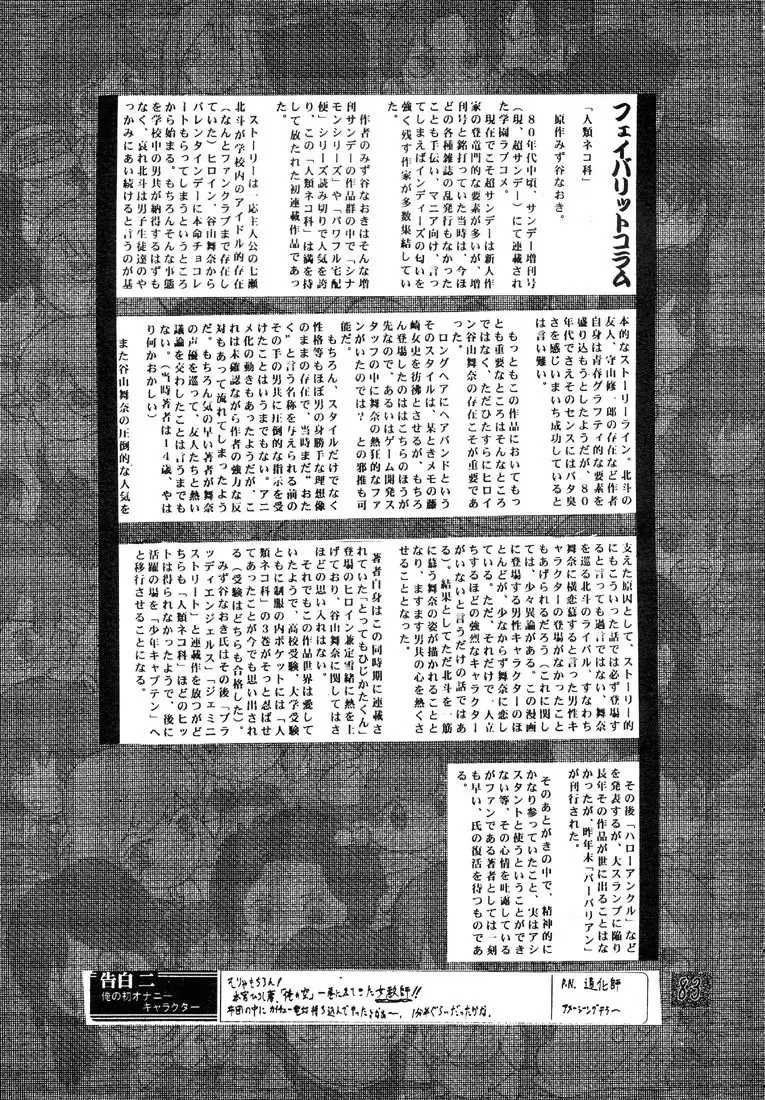 フェイバリットコラム
「人類ネコ科」
原作みず谷なおき。
80年代中頃、サンデー増刊号
(現、超サンデー)にて連載され
た学園ラブコメ。
現在でこそ超サンデーは新人作
家の登竜門的な要素が多いが、増
刊号と銘打っていた当時は、今ほ
どの各種雑誌の乱発行もなかった
ことも手伝い、マニア向け、言っ
てしまえばインディーズの匂いを
強く残す作家が多数集結してい
た。
作者のみず谷なおきはそんな増
刊サンデーの作品群の中で「シナ
モンシリーズ」や「パワフル宅配
便」シリーズ読み切りで人気を誇
り、この「人類ネコ科」は満を持
して放たれた初連載作品であっ
た。
ストーリーは一応主人公の七瀬
北斗が学校内のアイドル的存在
(なんとファンクラブまで存在し
ていた)ヒロイン、谷山舞奈から
バレンタインデーに本命チョコレ
ートもらってしまうというところ
から始まる。もちろんそんな事態
を学校中の男共が納得するはずも
なく、哀れ北斗は男子生徒達のや
っかみにあい続けると言うのが基
本的なストーリーライン。北斗の
友人、守山修一郎の存在など作者
自身は青春グラフティ的な要素を
盛り込もうとしたようだが、80
年代でさえそのセンスにはバタ臭
さを感じいまいち成功していると
は言い難い。
もっともこの作品においてもっ
とも重要なところはそんなところ
ではなく、ただひたすらにヒロイ
ン谷山舞奈の存在こそが重要であ
った。
ロングヘアにヘアバンドという
そのスタイルは、某ときメモの藤
崎女史を彷彿とさせるが、もちろ
ん登場したのはこちらのほうが
先なので、あるいはゲーム開発ス
タッフの中に舞奈の熱狂的なファ
ンがいたのでは?との邪推も可
能だ。
もちろん、スタイルだけでなく
性格等もほぼ男の身勝手な理想像
のままの存在で、当時まだ"おた
く"と言う名称を与えられる前の
その手の男共に圧倒的な指示を受
けたことはいうまでもない。アニ
メ化の動きもあったようだが、こ
れは未確認ながら作者の強力な反
対もあって流れてしまったよう
だ。もちろん気の早い著者が舞奈
の声優を巡って、友人たちと熱い
議論を交わしたことは言うまでも
ない。(当時著者は14歳、やは
り何かおかしい)
また谷山舞奈の圧倒的な人気を
支えた原因として、ストーリー的
にもこういった話では必ず登場す
ると言っても過言ではない、舞奈
を巡る北斗のライバル、すなわち
舞奈に横恋慕すると言った男性キ
ャラクターの登場がなかったこと
もあげられるだろう(これに関し
ては、少々異論がある。この漫画
に登場する男性キャラクターのほ
とんどが、少なからず舞奈に恋し
ている。ただ、それだけで、一人立
ちするほどの強烈なキャラクター
がいないと言うだけの話ではあ
る)。結果としてただ北斗を一筋
に慕う舞奈の姿が描かれることと
なり、ますます男共の心を熱くさ
せることとなった。
著者自身はこの同時期に連載さ
れていた「とってもひじかたくん」
登場のヒロイン兼定雪緒に熱を上
げており、谷山舞奈に関してはさ
ほどの思い入れはない。
それでもこの作品世界は愛して
いたようで、高校受験、大学受験
ともに制服の内ポケットには「人
類ネコ科」の3巻がそっと忍ばせ
てあったことが今でも思い出され
る(受験はどちらも合格した)。
みず谷なおき氏はその後「ブラ
ッディエンジェルス」「ジェミニ
ストリート」と連載作を放つがど
ちらも「人類ネコ科」ほどのヒッ
トは得られなかったようで、後に
活躍の場を「少年キャプテン」へ
と移行させることになる。
その後「ハローアンクル」など
を発表するが、大スランプに陥り
長年その作品が世に出ることはな
かったが、昨年末「バーバリアン」
が刊行された。
そのあとがきの中で、精神的に
かなり参っていたこと、実はアシ
スタントと使うということができ
ない等、その心情を吐露している
がファンである著者としては一刻
も早い、氏の復活を待つものであ
る。
告白二
俺の初オナニー
キャラクター
むりゃもろろん!
本宮ひろし著、「俺の空」一巻に出てきた女教師!!
1分半ぐらいだったかな。
P.N. 道化師
83